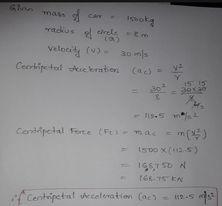 Given mass of car = 1500kg
radius of circle = 8 m
(r)
velocity (v) = 30 m/s
Centripetal Acceleration (ac) = v²/r
= 30²/8 = 30×30/8
15 15
= 112.5 m/s²
Centripetal Force (Fc) = mac = m(v²/r)
= 1500 × (112.5)
= 168,750 N
= 168.75 KN
Centripetal Acceleration (ac) = 112.5 m/s²